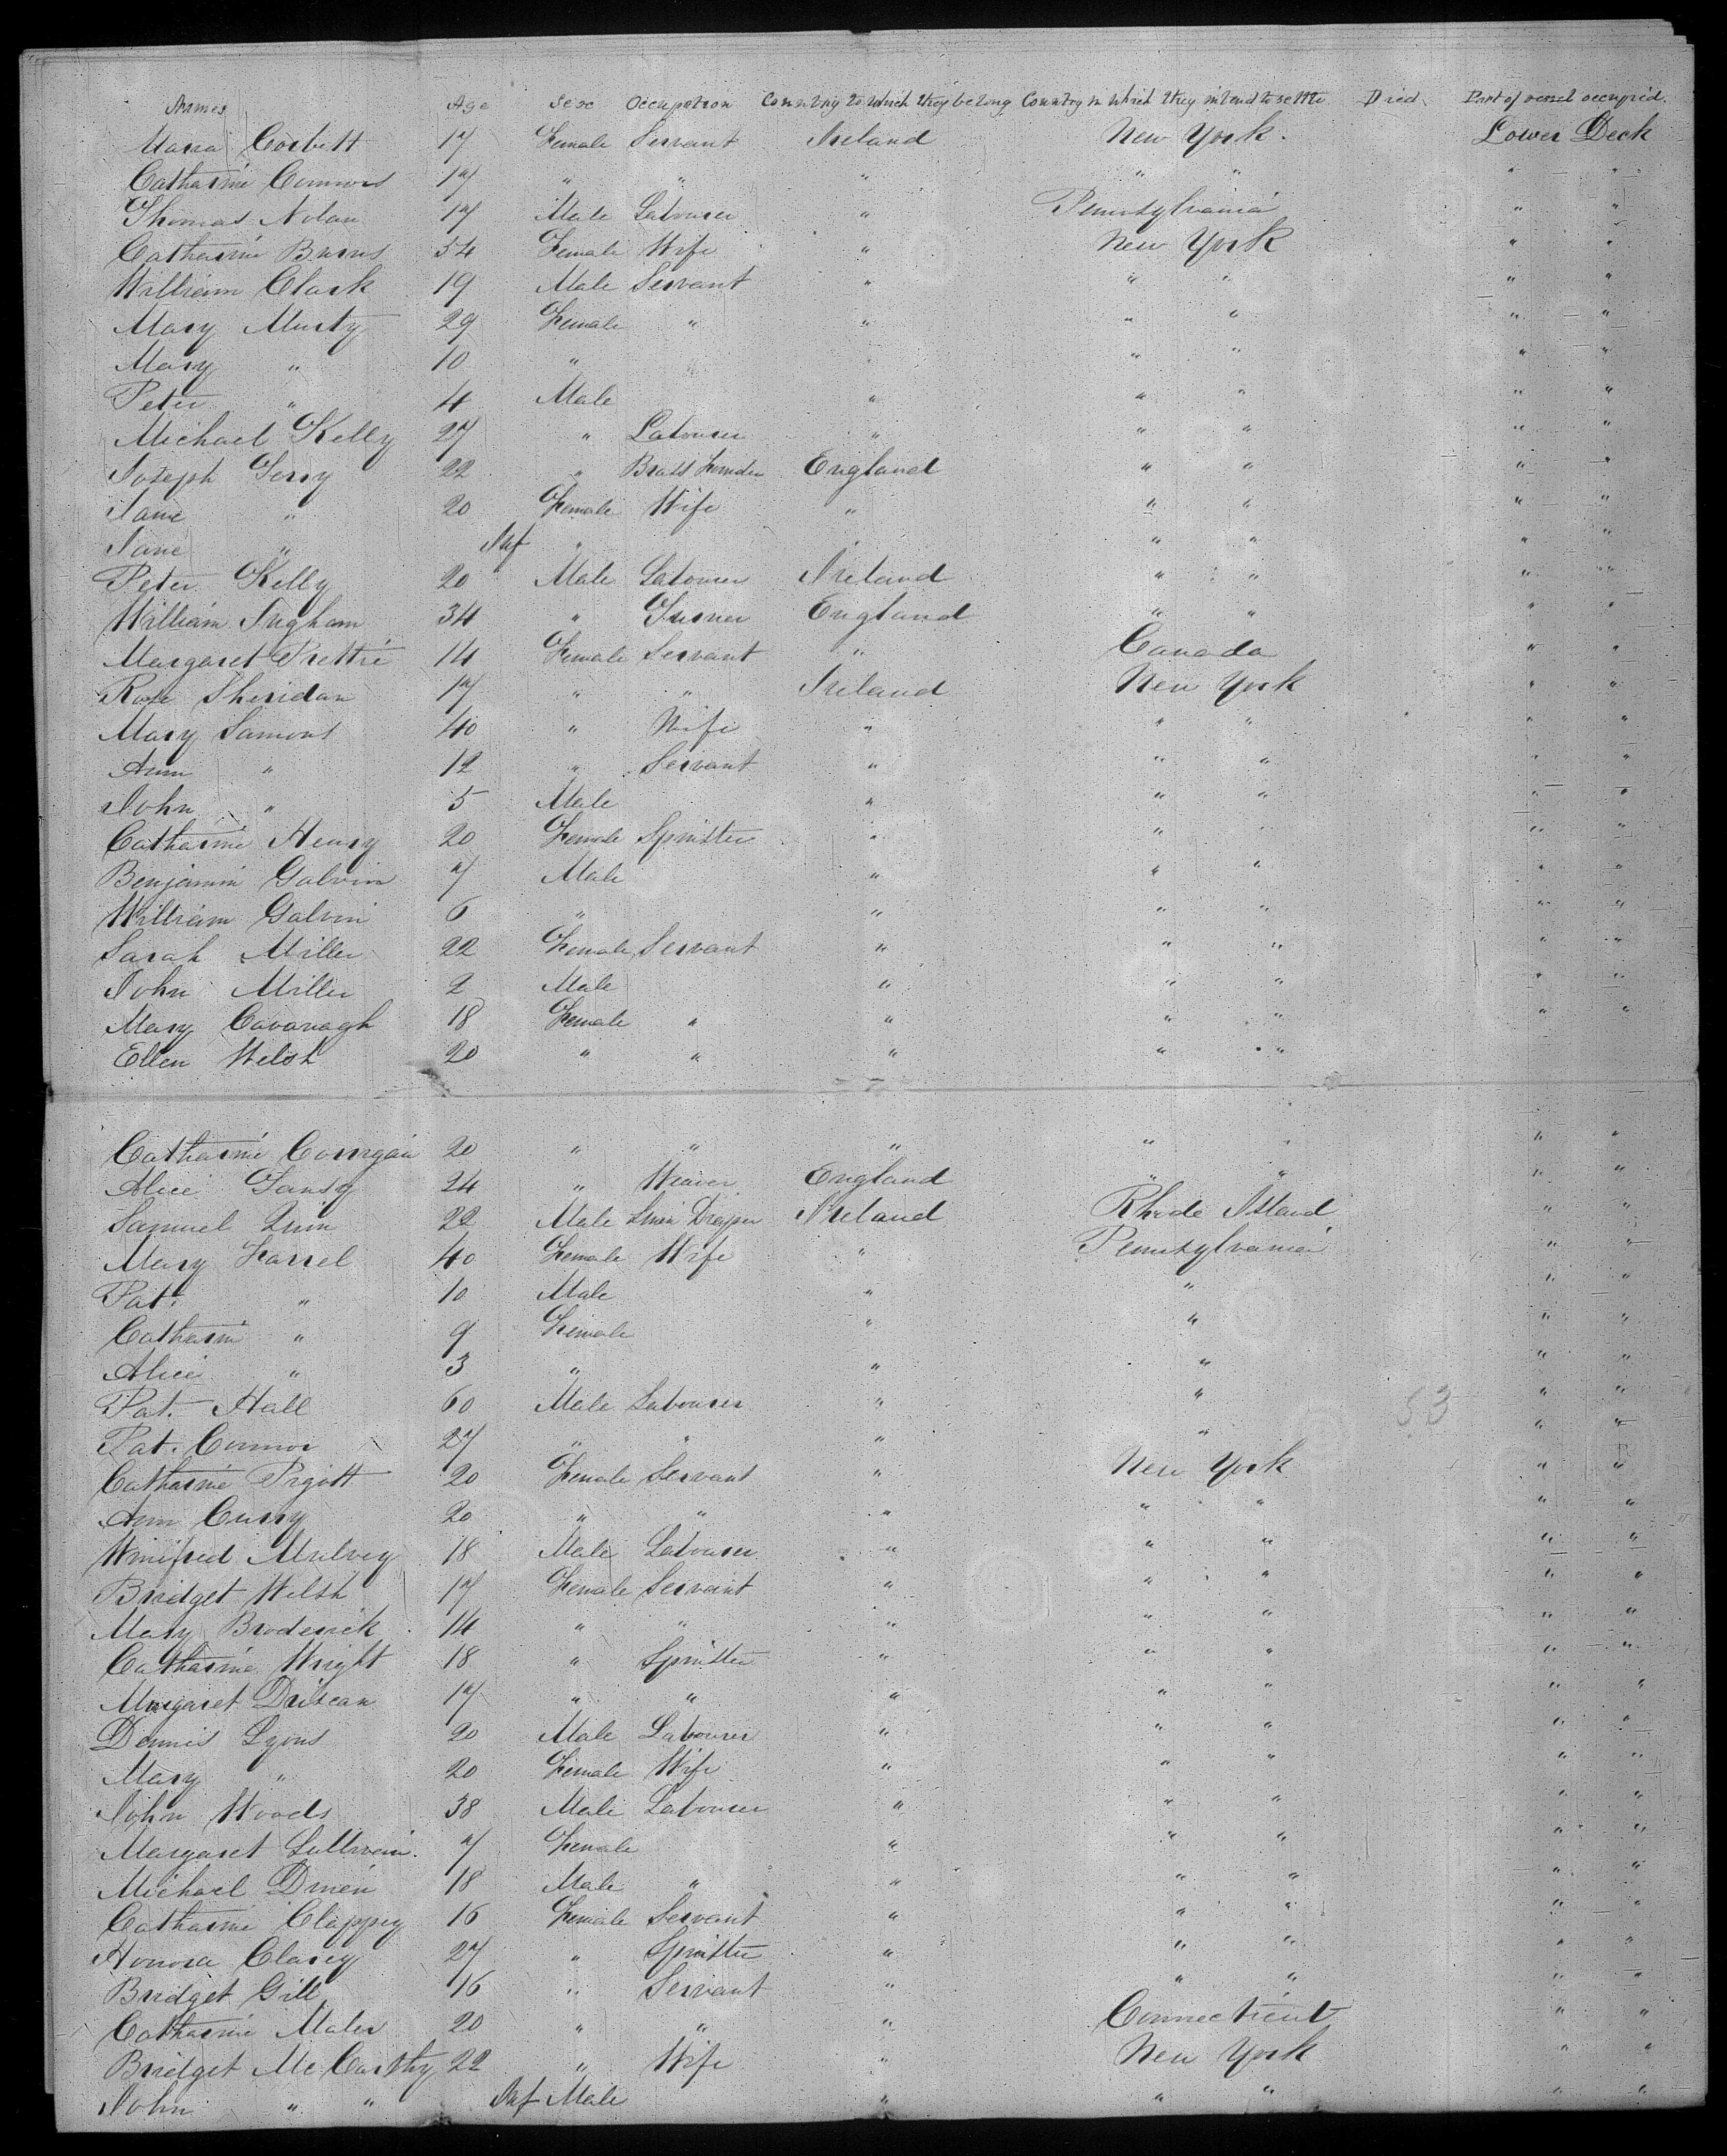 Names Age Sex Occupation Country to which they belong Country in which they intend to settle Died Part of vessel occupied.
Maria Corbitt 17 Female Servant Ireland New York. Lower Deck
Catharine Connors 17 " " " " " " "
Thomas Nolan 17 Male Labourer " Pennsylvania " "
Catharine Burns 34 Female Wife " New York " "
William Clark 19 Male Servant " " " " "
Mary Murty 29 Female " " " " " "
Mary " 10 " " " " " "
Peter " 4 Male " " " " "
Michael Kelly 27 " Labourer " " " " "
Joseph Terry 22 " Brass Founder England " " " "
Jane " 20 Female Wife " " " " "
Jane " Inf " " " " " "
Peter Kelly 20 Male Labourer Ireland " " " "
William Ingham 34 " Turner England " " " "
Margaret Prettie 14 Female Servant " Canada " "
Rose Sheridan 17 " " Ireland New York " "
Mary Samons 40 " Wife " " " " "
Ann " 12 " Servant " " " " "
John " 5 Male " " " " "
Catharine Henry 20 Female Spinster " " " "
Benjamin Galvin 7 Male " " " " "
William Galvin 6 " " " " " "
Sarah Miller 22 Female Servant " " " " "
John Miller 2 Male " " " " "
Mary Cavanagh 18 Female " " " " " "
Ellen Welsh 20 " " " " "
Catharine Corrigan 20 " " " " " " "
Alice Tansy 24 " Weaver England " " " "
Samuel Quin 22 Male Linen Draper Ireland Rhode Island " "
Mary Farrel 40 Female Wife " Pennsylvania " "
Pat. " 10 Male " " " "
Catharin " 9 Female " " " "
Alice " 3 " " " " "
Pat. Hall 60 Male Labourer " " 53 " "
Pat. Connor 27 " " " " " "
Catharine Pigott 20 Female Servant " New York " "
Ann Curry 20 " " " " " " "
Winifred Mulvey 18 Male Labourer " " " " "
Bridget Welsh 17 Female Servant " " " " "
Mary Broderick 14 " " " " " " "
Catharine Wright 18 " Spinster " " " " "
Margaret Driscan 17 " " " " " " "
Dennis Lyons 20 Male Labourer " " " " "
Mary " 20 Female Wife " " " " "
John Woods 38 Male Labourer " " " " "
Margaret Sullivan. 7 Female " " " " "
Michael Dinen 18 Male " " " " " "
Catharine Clappey 16 Female Servant " " " " "
Honora Clarey 27 " Spinster " " " " "
Bridget Gill 16 " Servant " " " " "
Catharine Maler 20 " " " Connecticut " "
Bridget McCarthy 22 " Wife " New York " "
John " " Inf Male " " " " "